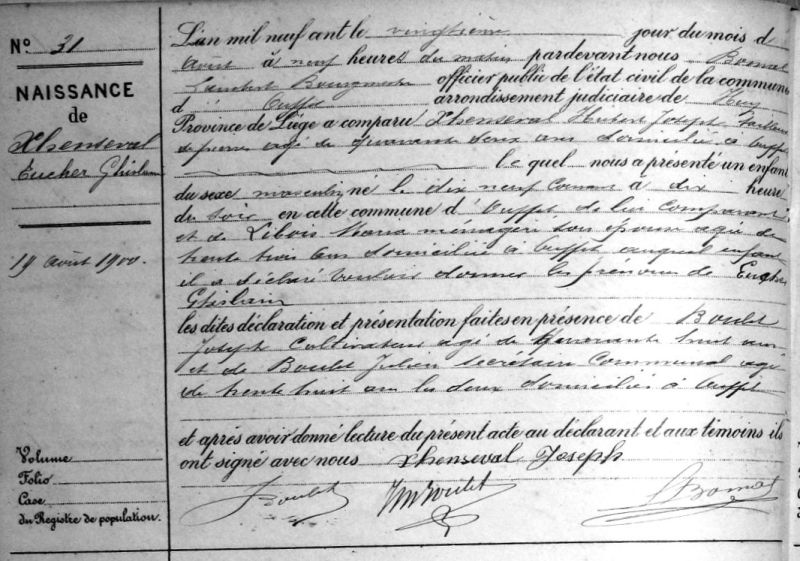 N° 31
NAISSANCE
de
Xhenseval
Eucher Ghislain
19 Août 1900.
Volume
Folio
Case
du Registre de population.
L'an mil neuf cent le vingtième jour du mois d
Août à neuf heures du matin pardevant nous Bomal
Lambert Bourgmestre officier public de l'état civil de la commune
d' Ouffet arrondissement judiciaire de Huy
Province de Liège a comparu Xhenseval Hubert Joseph Tailleur
de pierres agé de quarante deux ans domicilié à Ouffet
le quel nous a présenté un enfant
du sexe masculin né le dix neuf courant à dix heures
du soir en cette commune d' Ouffet de lui comparant
et de Libois Maria ménagère son épouse agée de
trente trois ans domiciliée à Ouffet auquel enfant
il a déclaré vouloir donner les prénoms de Eucher
Ghislain
les dites déclaration et présentation faites en présence de Boulet
Joseph Cultivateur agé de huit ans
et de Boulet Julien Secrétaire Communal agé
de trente huit ans les deux domiciliés à Ouffet
et après avoir donné lecture du présent acte au déclarant et aux témoins ils
ont signé avec nous Xhenseval Joseph
Boulet Boulet LBomal